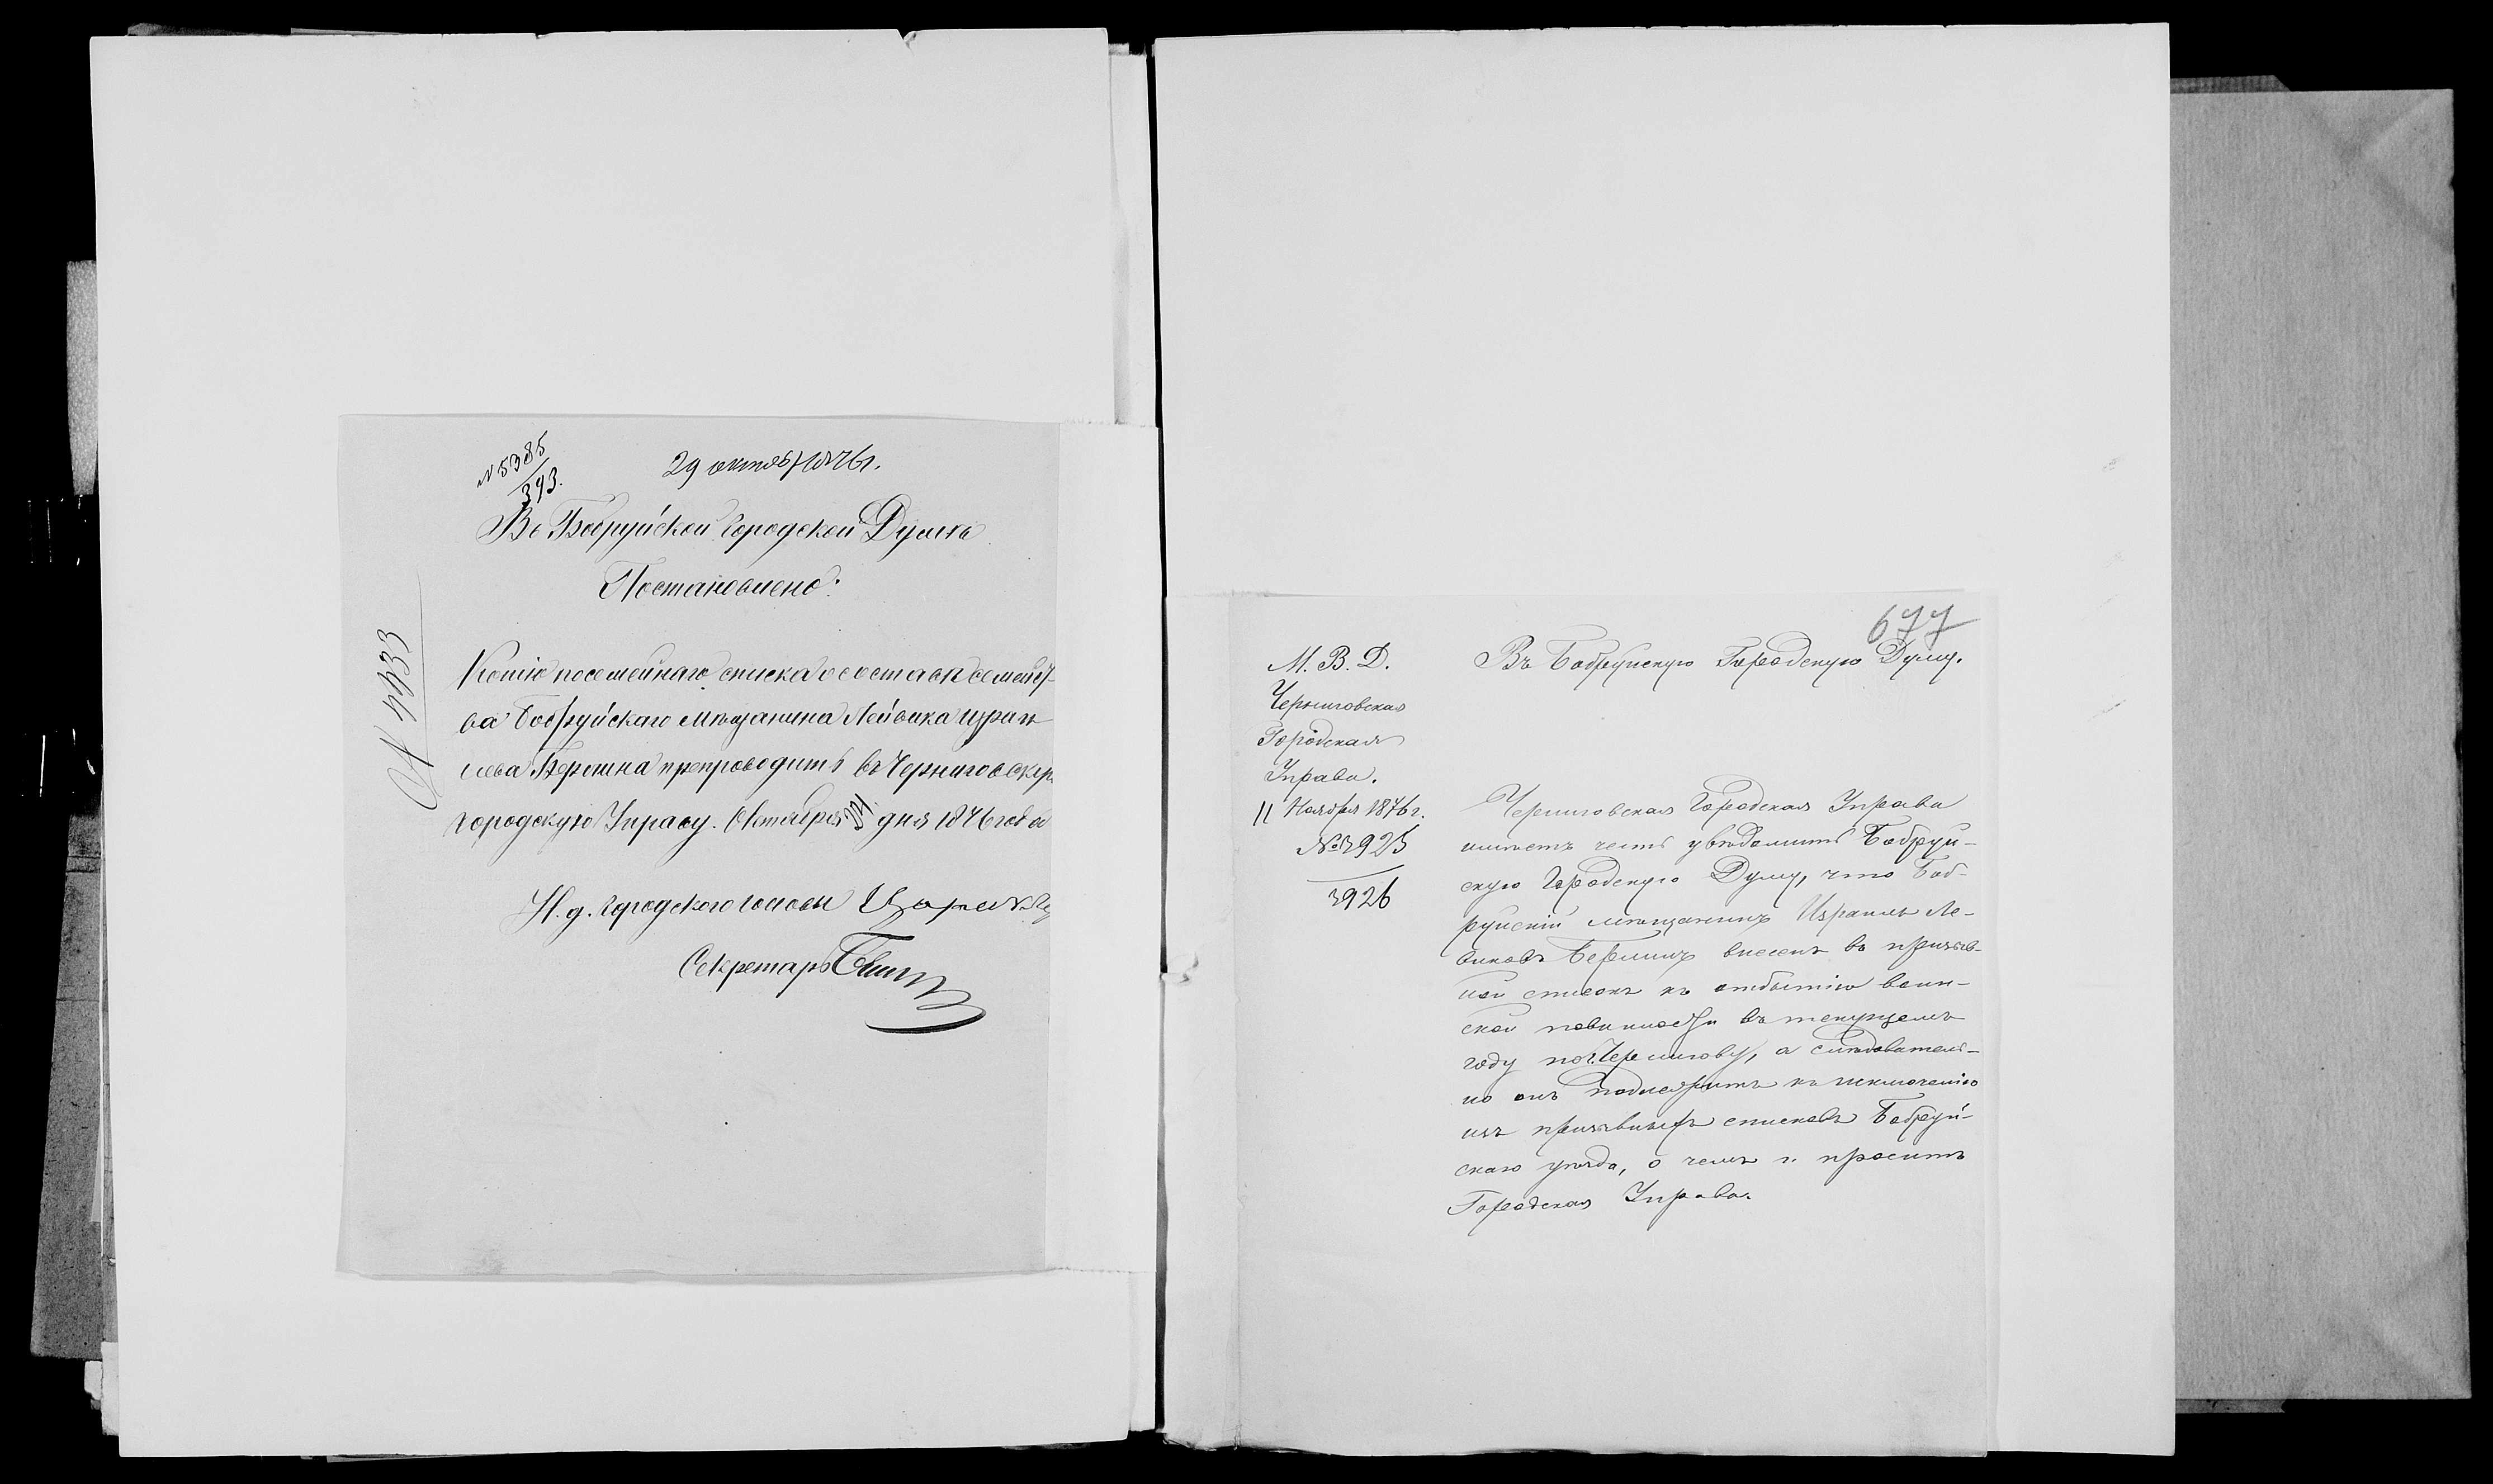 № 5385
393.
29 октяб. 1876 г.
Въ Бобруйской Городской Думѣ
Постановлено:
№ 4933
Копію посемейнаго списка о составѣ семейст-
ва Бобруйскаго мѣщанина Лейвика Израи-
лева Берлина препроводить въ Черниговскую
городскую Управу. Октября дня 1876 года
И. д. Городскаго головы
Секретарь
677
М. В. Д.
Черниговская
Городская
Управа.
11 Ноября 1876 г.
№ 3925
3926
Въ Бобруйскую Городскую Думу.
Черниговская Городская Управа
имѣетъ честь увѣдомить Бобруй-
скую Городскую Думу, что Боб-
руйскій мѣщанинъ Израиль Ле-
виковъ Берлинъ внесенъ въ призыв-
ной списокъ къ отбытію воин-
ской повинности въ текущемъ
году по г. Чернигову, а слѣдователь-
но онъ подлежитъ къ исключенію
изъ призывныхъ списковъ Бобруй-
скаго уѣзда, о чемъ и проситъ
Городская Управа.